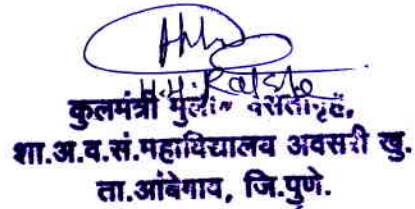 कुलमंत्री मुलींचे वसतीगृह,
शा.अ.व.सं.महाविद्यालय अवसरी खु.
ता.आंबेगाव, जि.पुणे.